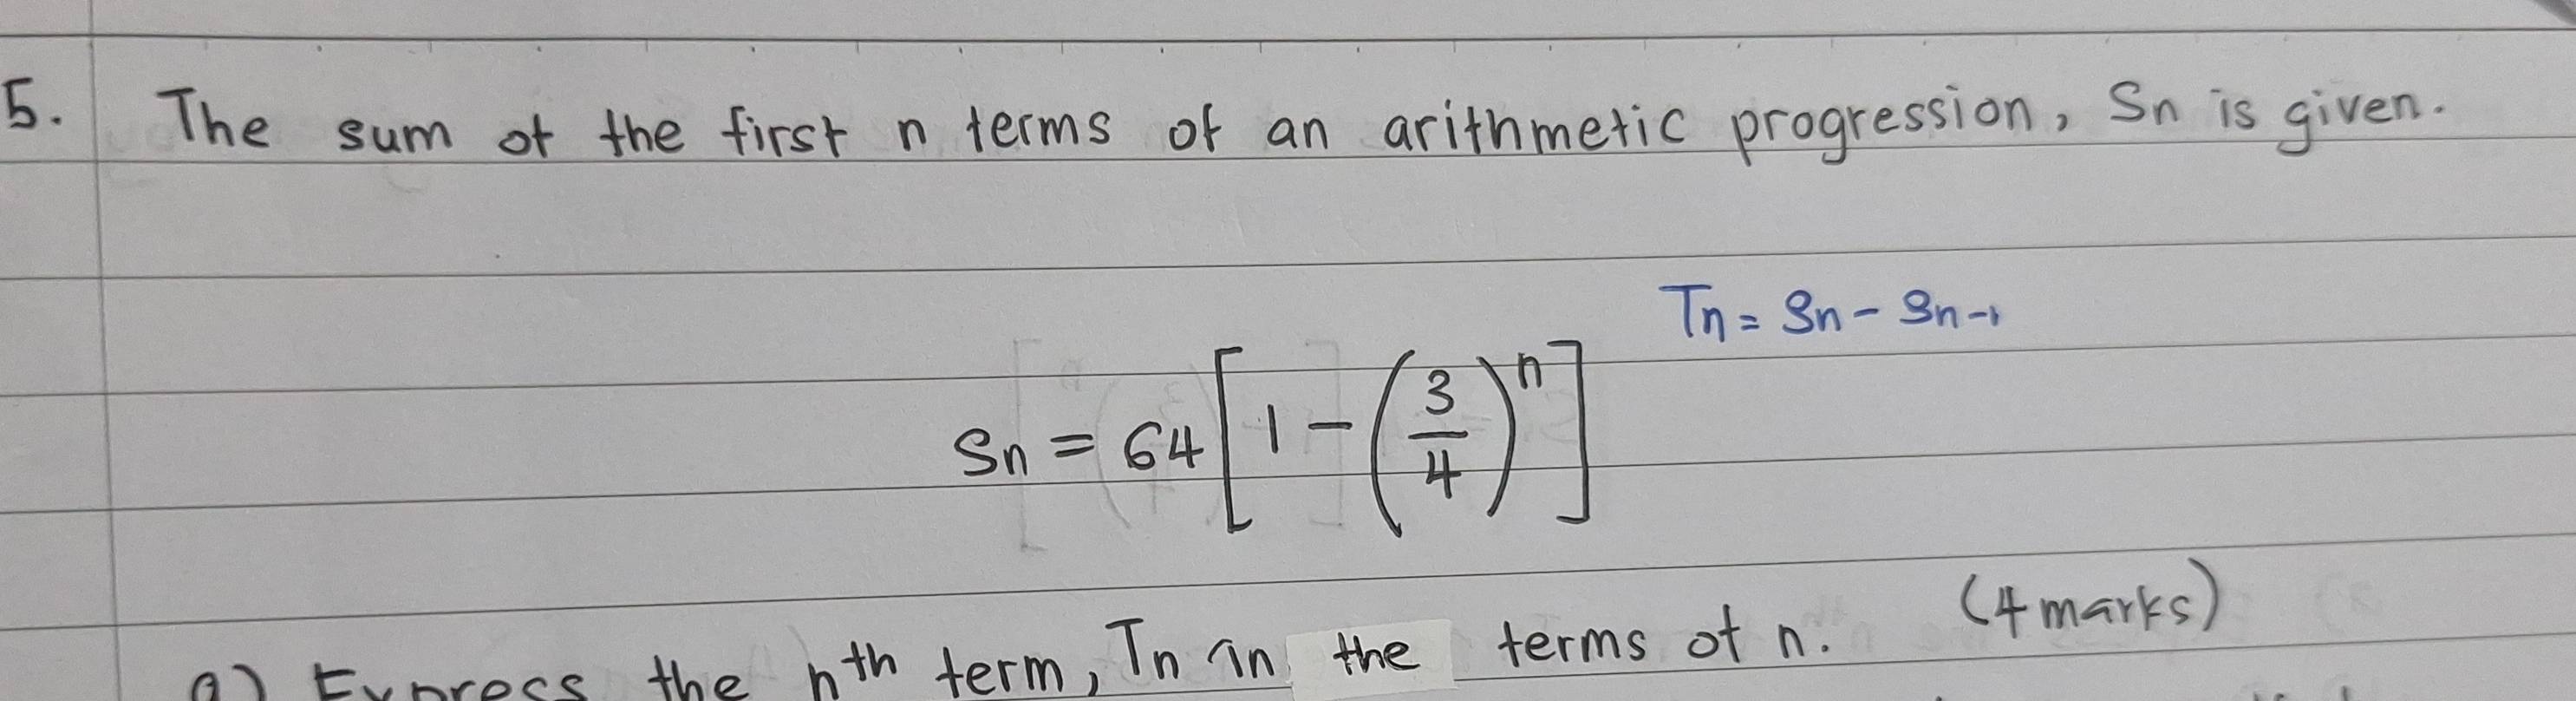 5. The sum of the first n terms of an arithmetic progression, Sn is given.
Tn = Sn - Sn-1
Sn = 64 [1 - (3/4)^n]
a) Express the nth term, Tn in the terms of n. (4 marks)